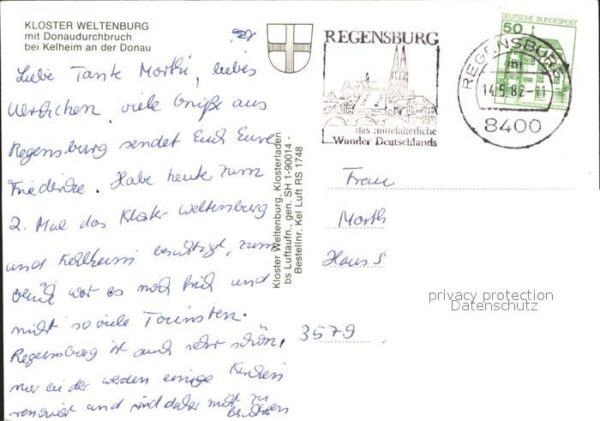 KLOSTER WELTENBURG
mit Donaudurchbruch
bei Kelheim an der Donau
Liebe Tante Marthi, liebes
viele Grüße aus
Regensburg sendet Euch Eure
Friederike. Habe heute zum
2. Mal das Kloster Weltenburg
und Kehlheim besichtigt, zum
Glück war es noch früh und
nicht so viele Touristen.
Regensburg ist auch sehr schön,
nur leider werden einige Kirchen
renoviert und sind daher nicht zu
besichtigen
Kloster Weltenburg, Klosterladen
bs Luftaufn., gen. SH 1-90014 -
Bestellnr. Kel Luft RS 1748
REGENSBURG
das mittelalterliche
Wunder Deutschlands
DEUTSCHE BUNDESPOST
50
REGENSBURG
14.5.82-11
8400
Frau
Marth
Haus S
3579
privacy protection
Datenschutz